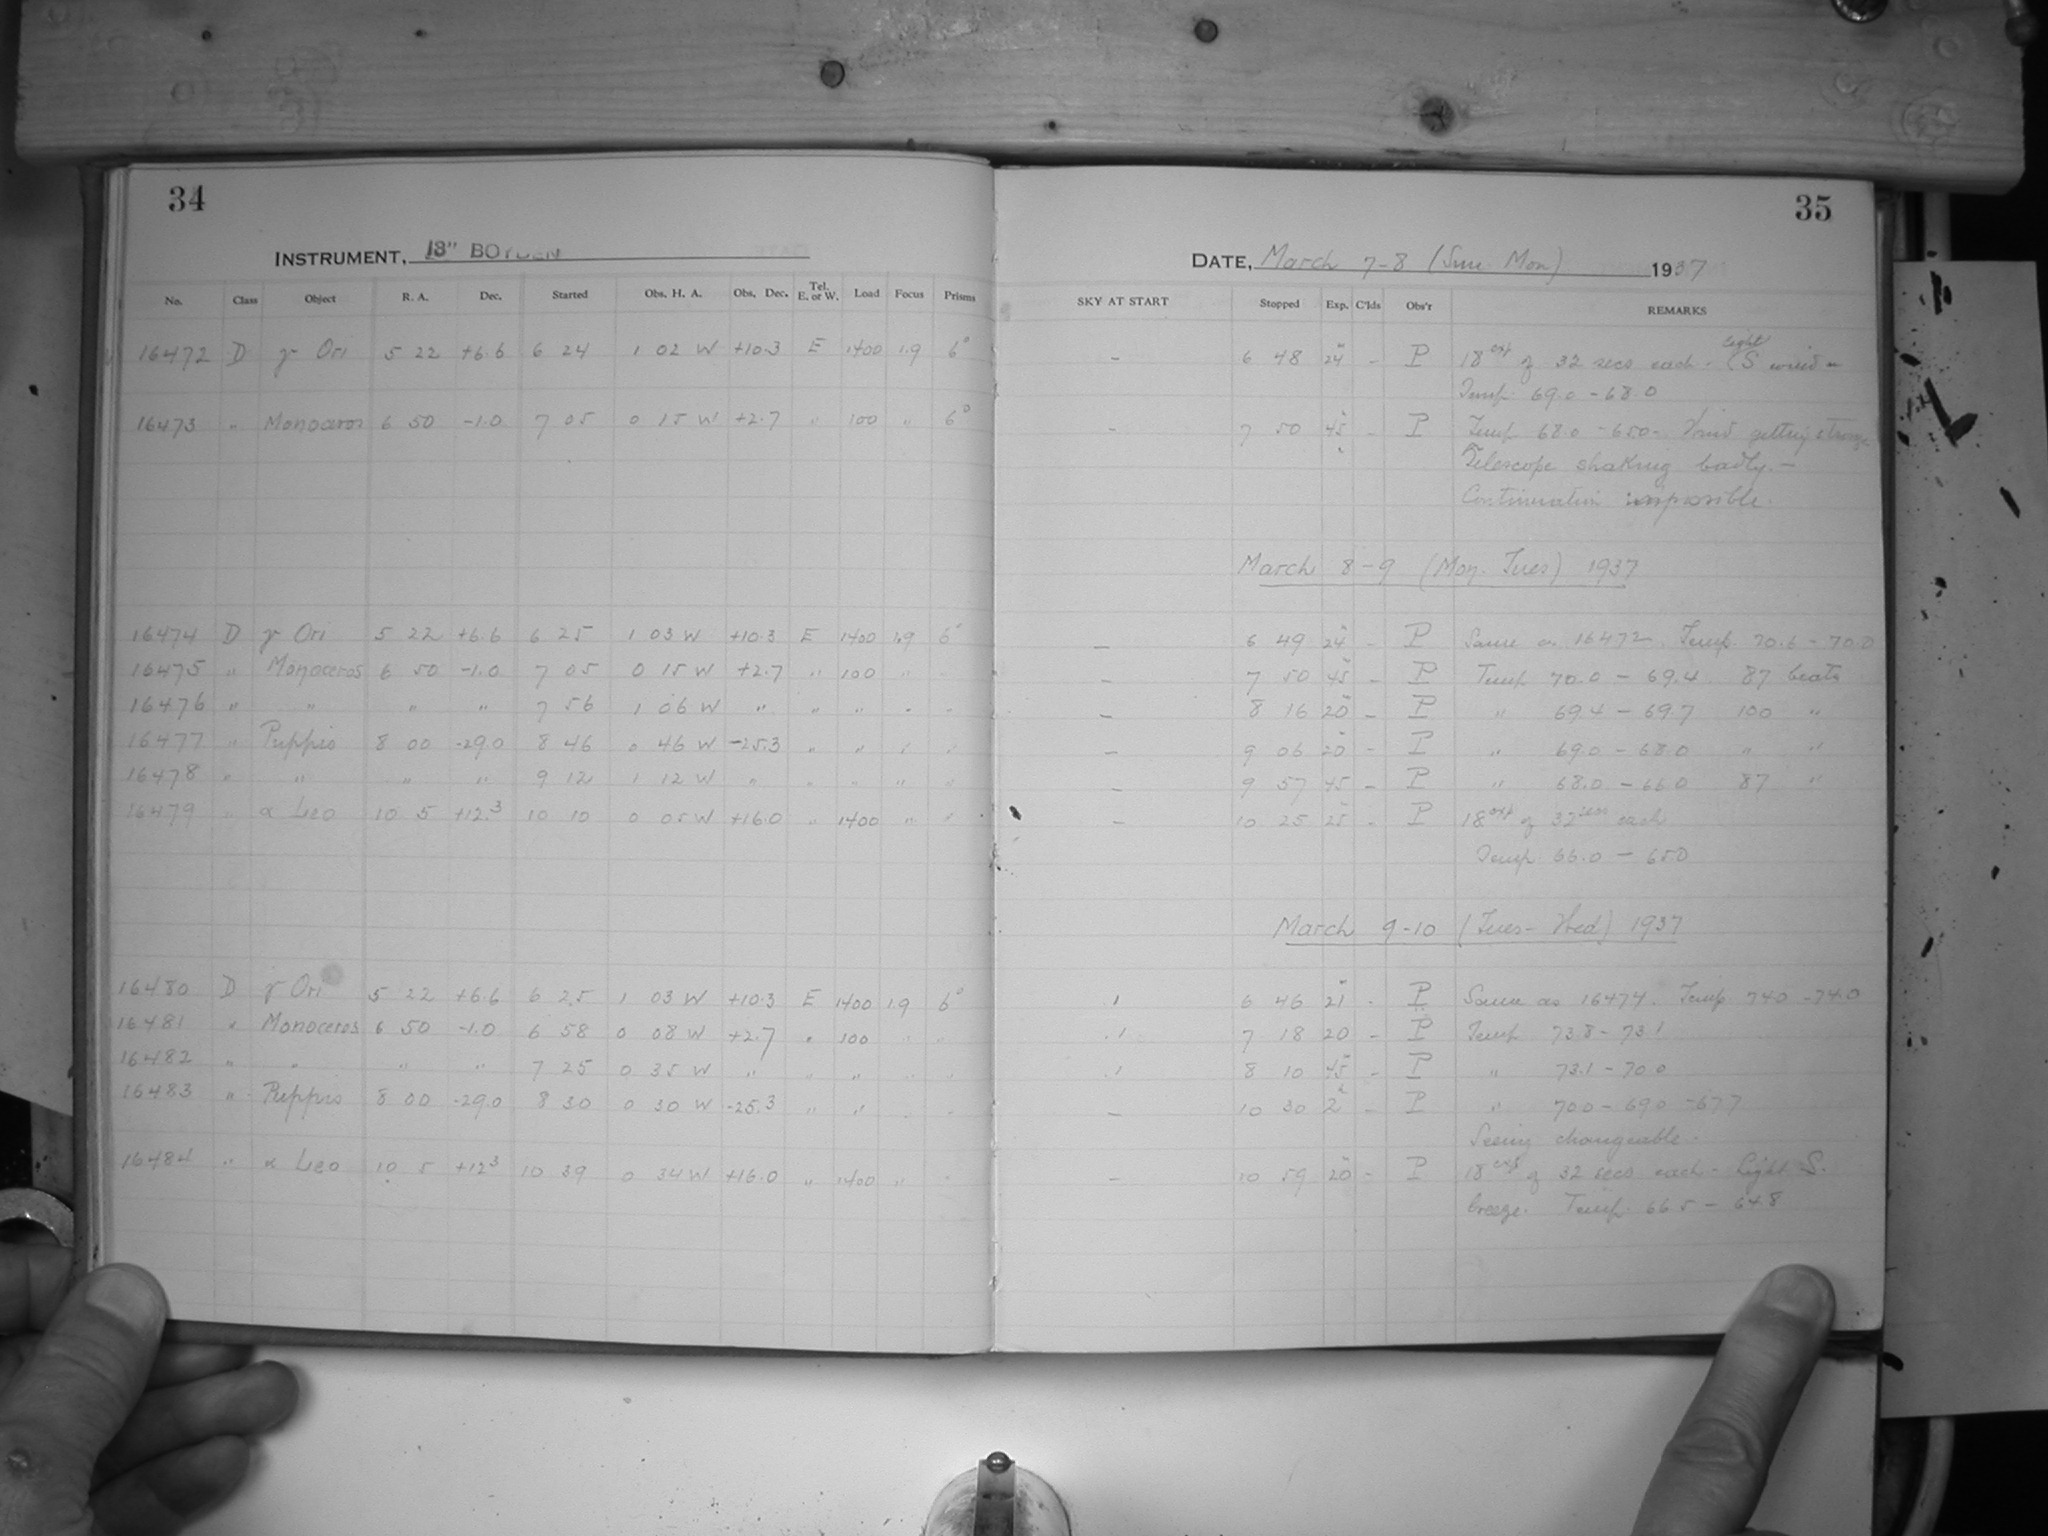 34
INSTRUMENT, 13" BOYDEN
No. Class Object R. A. Dec. Started Obs. H. A. Obs. Dec. Tel. E. or W. Load Focus Prisms
16472 D γ Ori 5 22 +6.6 6 24 1 02 W +10.3 E 1400 1.9 6°
16473 " Monoceros 6 50 -1.0 7 05 0 15 W +2.7 " 100 " 6°
16474 D γ Ori 5 22 +6.6 6 25 1 03 W +10.3 E 1400 1.9 6°
16475 " Monoceros 6 50 -1.0 7 05 0 15 W +2.7 " 100 " "
16476 " " " " 7 56 1 06 W " " " " "
16477 " Puppis 8 00 -29.0 8 46 0 46 W -25.3 " " " "
16478 " " " " 9 12 1 12 W " " " " "
16479 " α Leo 10 5 +12.3 10 10 0 05 W +16.0 " 1400 " "
16480 D γ Ori 5 22 +6.6 6 25 1 03 W +10.3 E 1400 1.9 6°
16481 " Monoceros 6 50 -1.0 6 58 0 08 W +2.7 " 100 " "
16482 " " " " 7 25 0 35 W " " " " "
16483 " Puppis 8 00 -29.0 8 30 0 30 W -25.3 " " " "
16484 " α Leo 10 5 +12.3 10 39 0 34 W +16.0 " 1400 " "
35
DATE, March 7-8 (Sun. Mon) 1937
SKY AT START Stopped Exp. C'lds Obs'r REMARKS
- 6 48 24 - P 18 exp of 32 secs each. light (S wind
Temp. 69.0 - 68.0
- 7 50 45 - P Temp 68.0 - 65.0 - Wind getting stronger
Telescope shaking badly. -
Continuation impossible.
March 8-9 (Mon. Tues) 1937
- 6 49 24 - P Same as 16472. Temp. 70.6 - 70.0
- 7 50 45 - P Temp 70.0 - 69.4 87 beats
- 8 16 20 - P " 69.4 - 69.7 100 "
- 9 06 20 - P " 69.0 - 68.0 " "
- 9 57 45 - P " 68.0 - 66.0 87 "
- 10 25 25 - P 18 exp of 32 secs each
Temp 66.0 - 65.0
March 9-10 (Tues - Wed) 1937
.1 6 46 21 - P Same as 16474. Temp 74.0 - 74.0
.1 7 18 20 - P Temp 73.8 - 73.1
.1 8 10 45 - P " 73.1 - 70.0
- 10 30 2 - P " 70.0 - 69.0 - 67.7
Seeing changeable.
- 10 59 20 - P 18 exp of 32 secs each - Light S.
breeze. Temp. 66.5 - 64.8